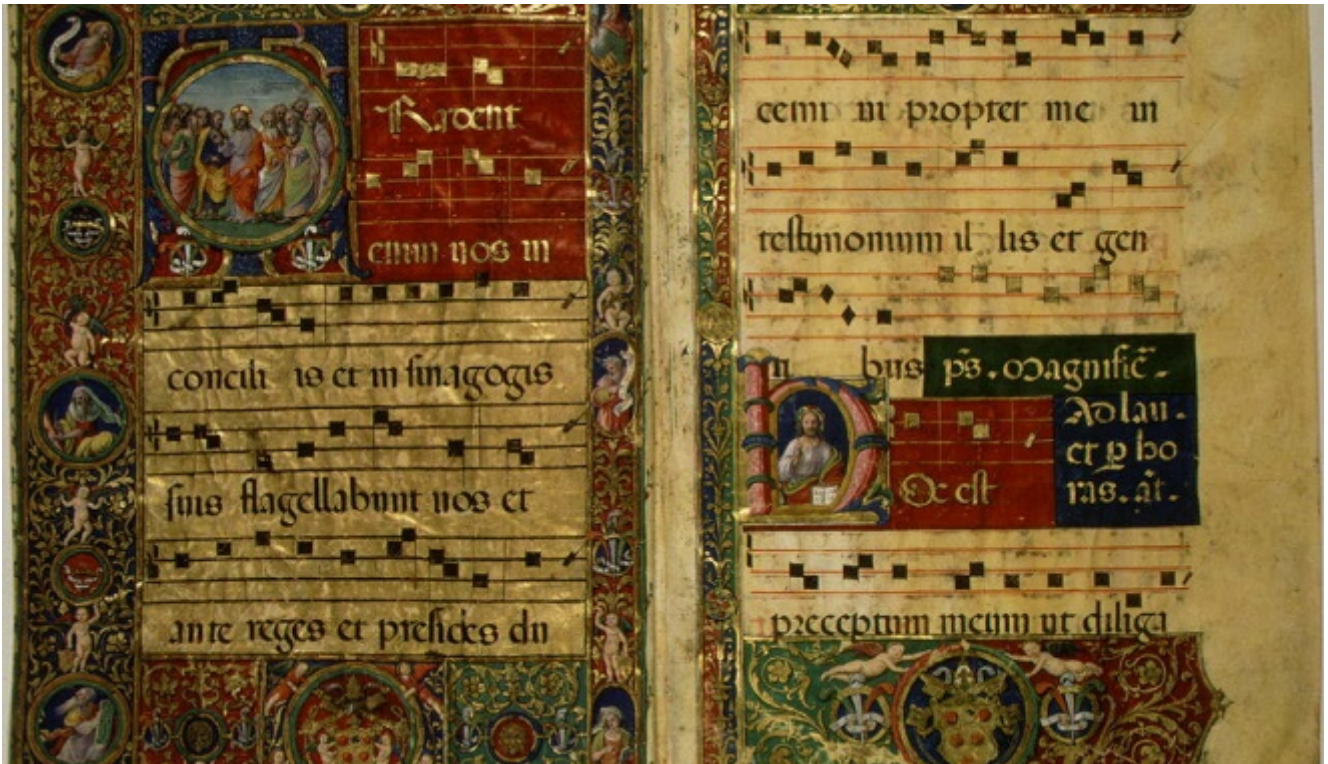 Tradent
enim uos in
concili is et in sinagogis
suis flagellabunt uos et
ante reges et presides du
cemi ni propter me in
testimonium il lis et gen
ti bus ps. Magnific̄.
Ad lau.
et ꝑ ho
ras. añ.
Oc est
preceptum meum ut diliga